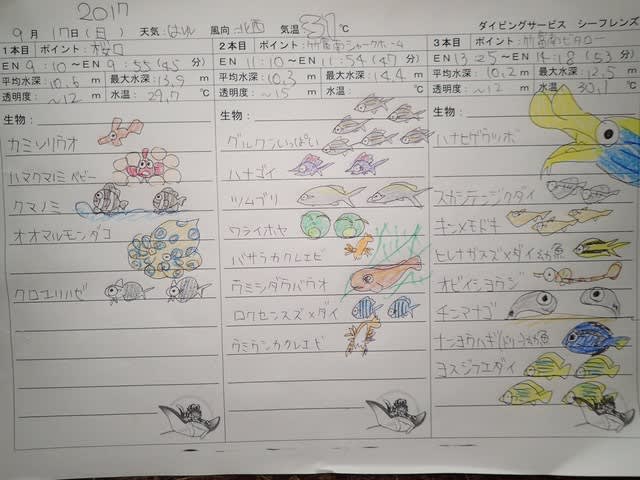 2017
9月17日(日) 天気:はれ 風向:北西 気温 31℃ ダイビングサービス シーフレンズ
1本目 ポイント:桜口
EN 9:10 ~EN 9:55 (45分)
平均水深:10.5 m 最大水深:13.9 m
透明度:~12 m 水温:29.7 ℃
生物:
カミソリウオ
ハマクマノミ ベビー
クマノミ
オオマルモンダコ
クロユリハゼ
2本目 ポイント:竹富南シャークホーム
EN 11:10 ~EN 11:54 (47分)
平均水深:10.3 m 最大水深:14.4 m
透明度:~15 m 水温: ℃
生物:
グルクンいっぱい
ハナゴイ
ツムブリ
ワライホヤ
バサラカクレエビ
ウミシダ
ロクセンスズメダイ
ウミウシカクレエビ
3本目 ポイント:竹富南ビタロー
EN 13:25 ~EN 14:18 (53分)
平均水深:10.2 m 最大水深:12.5 m
透明度:~12 m 水温:30.1 ℃
生物:
ハナヒゲウツボ
スカシテンジクダイ
キンメモドキ
ヒレナガスズメダイ幼魚
オビイシヨウジ
チンアナゴ
ナンヨウハギ(ドリー)幼魚
ヨスジフエダイ